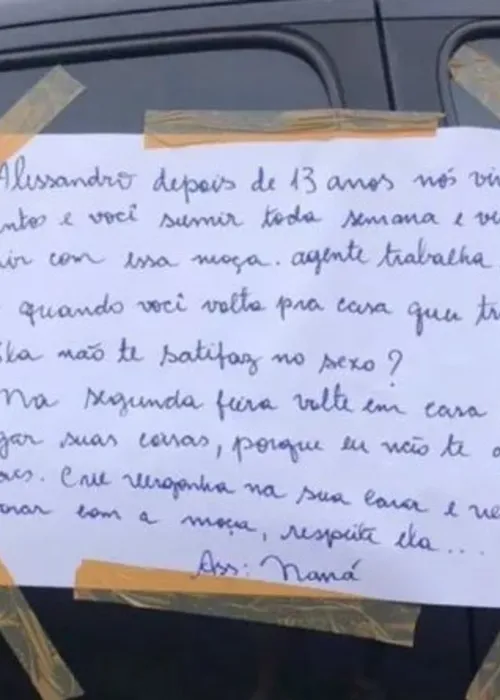 Alessandro depois de 13 anos nós vi
ntos e você sumir toda semana e v
ir com essa moça. agente trabalha
quando você volta pra casa quu tr
ka não te satifaz no sexo?
Na segunda feira volte em casa
gar suas coisas, porque eu não te a
Crie vergonha na sua cara e ve
orar com a moça, respeite ela...
Ass: Naná